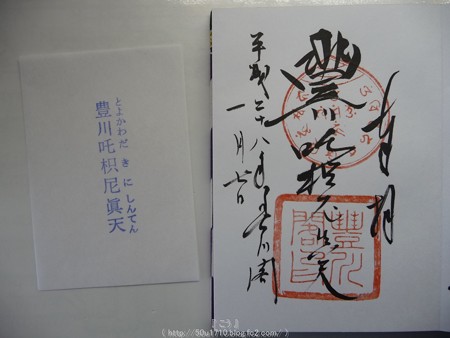 とよかわだきにしんてん
豊川吒枳尼眞天
奉拝
豐川吒枳尼眞天
平成二十八年豊川閣
一月七日
豐川閣印
『こう』
( http://50u1710.blog.fc2.com/ )